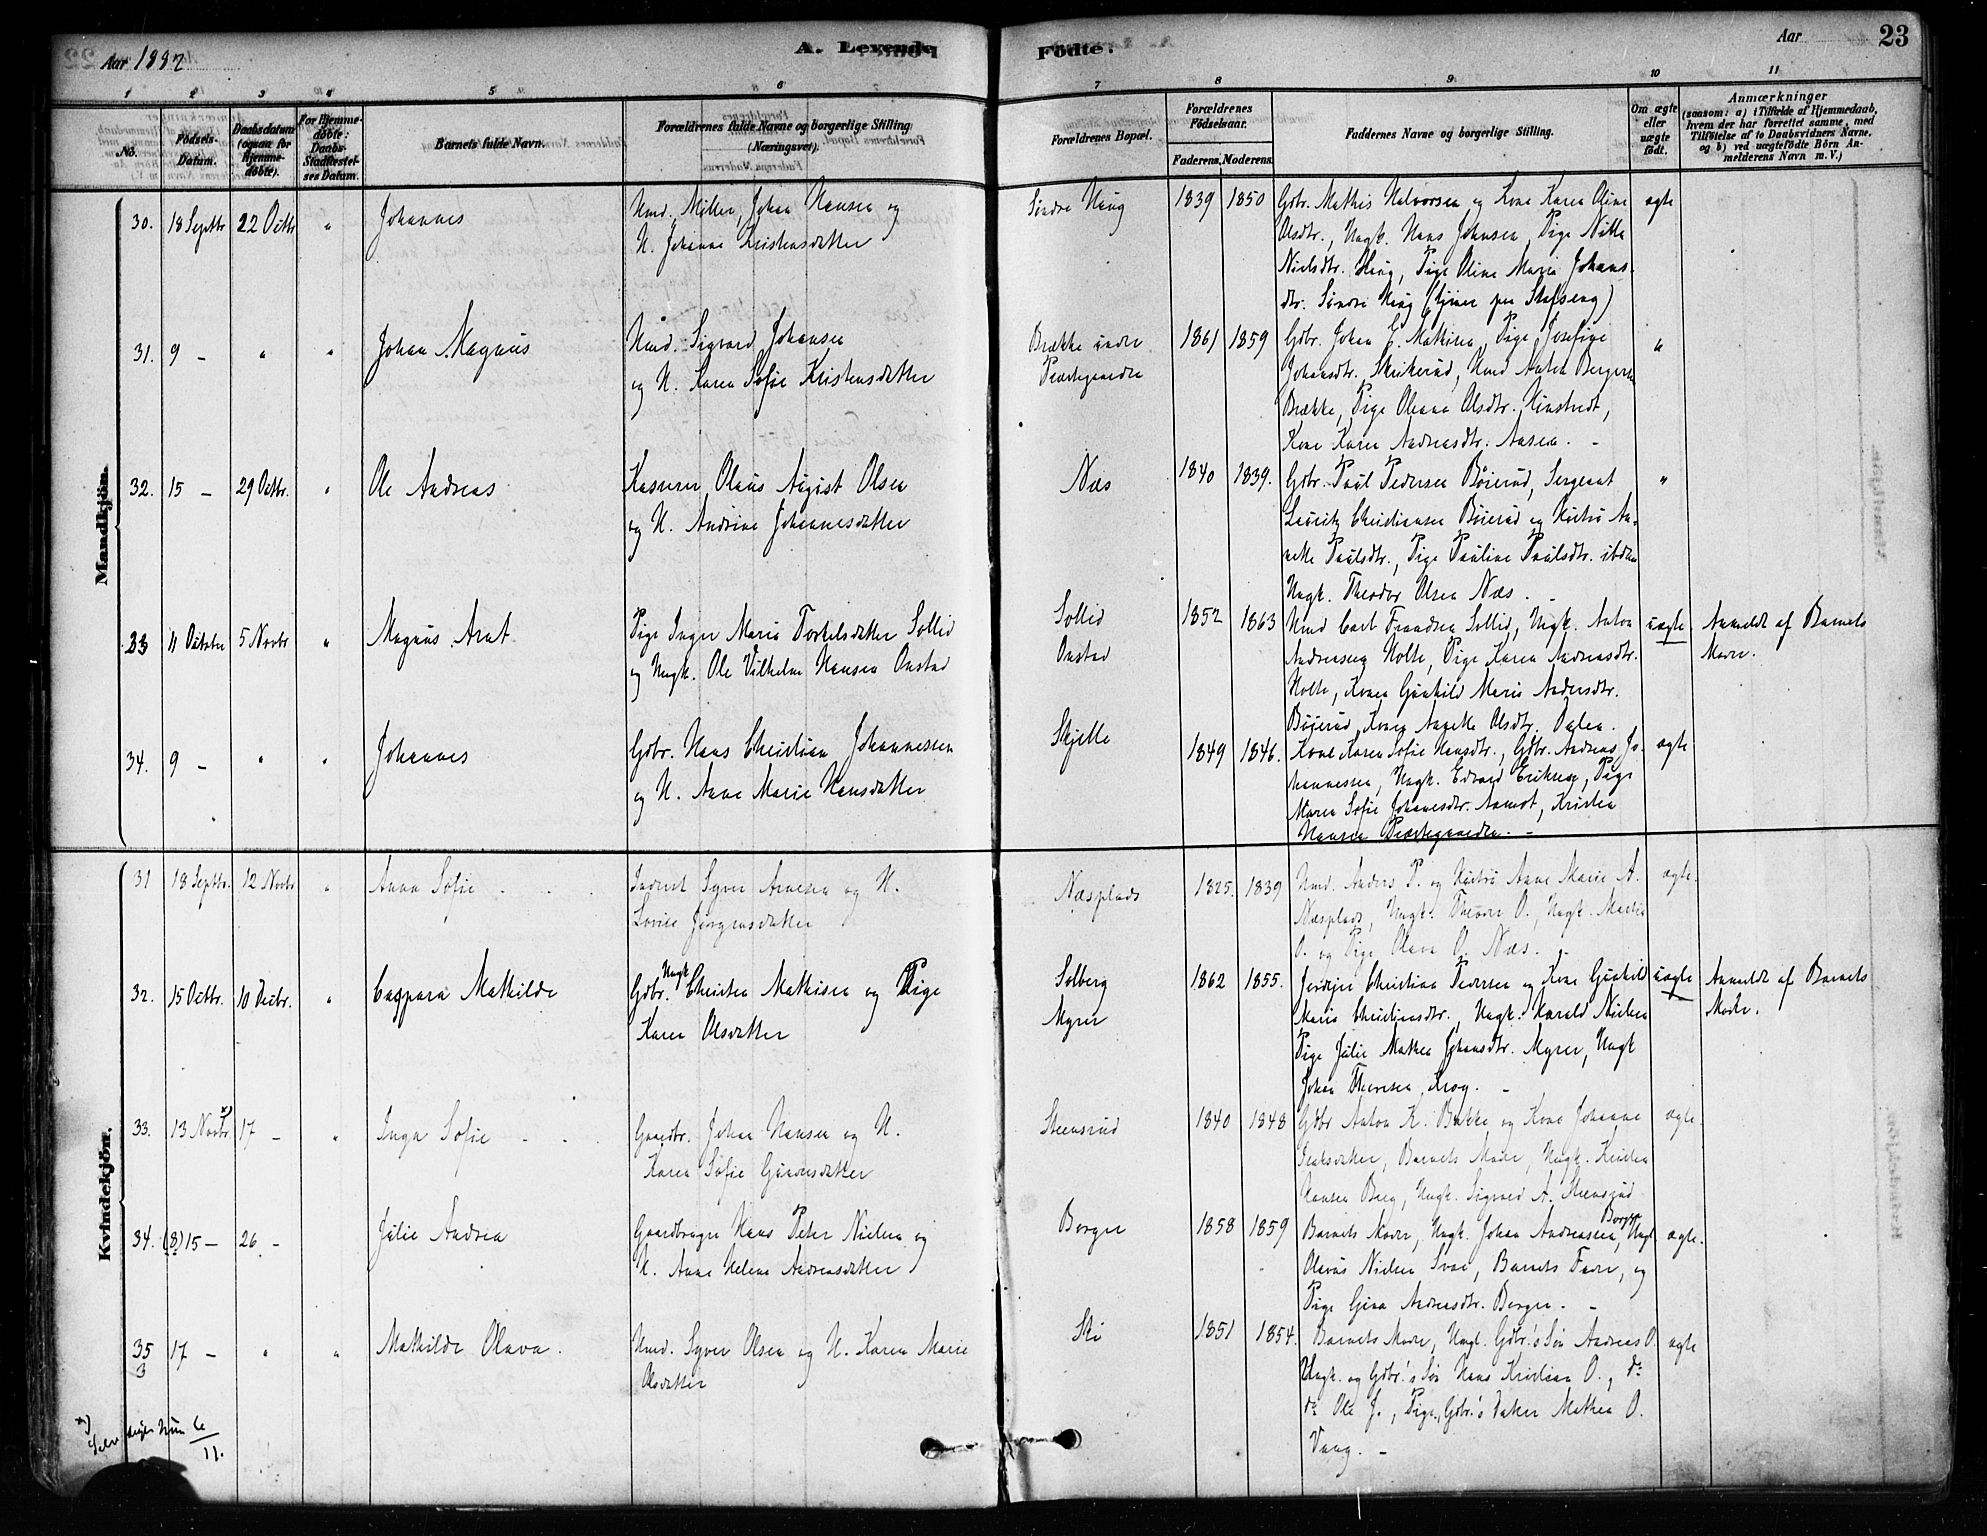 Aar 1882
A. Levende
Födte.
Aar
23
1 2 3 4 5 6 7 8 9 10 11
No.
Födsels-Datum.
Daabsdatum (ogsaa for Hjemme-döbte).
For Hjemme-döbte: Daabs-Stadfæstel-ses Datum.
Barnets fulde Navn.
Forældrenes fulde Navne og borgerlige Stilling (Næringsvei).
Forældrenes Bopæl.
Forældrenes Födselsaar.
Faderens. Moderens.
Faddernes Navne og borgerlige Stilling.
Om ægte eller uægte födt.
Anmærkninger
(saasom: a) i Tilfælde af Hjemmedaab, hvem der har forrettet samme, med Tilföielse af to Daabsvidners Navne, og b) ved uægtefödte Börn An-melderens Navn m. V.)
Mandkjön.
30. 18 Septbr 22 Octbr " Johannes
Hmd. Møller Johan Hansen og
H. Johanne Kristensdatter
Søndre Haug 1839 1850
Gdbr. Mathis Halvorsen og Kone Karen Oline
Olsdtr., Ungk. Hans Johnsen, Pige Nille
Nielsdtr. Haug, Pige Oline Marie Johans-
dtr. Søndre Haug
ægte
31. 9 - " " Johan Magnus
Hmd. Sigvard Johansen
og H. Karen Sofie Kristensdatter
Brække under
Præstegaarden
1861 1859
Gdbr. Johan E. Mathisen, Pige Josefine
Johansdtr. Skikerud, Hmd Anton Bergersen
Brække, Pige Oleana Olsdtr.
Kone Karen Andreasdtr. Aasen. -
"
32. 15 - 29 Octbr. " Ole Andreas
Kasserer Olaus August Olsen
og H. Andrine Johannesdatter
Næs 1840 1839.
Gdbr. Paul Pedersen Bøierud, Sergeant
Lauritz Christiansen Bøierud og Hustru An-
nette Paulsdtr., Pige Pauline Paulsdtr. ibdm
Ungk. Theodor Olsen Næs. -
"
33 11 Octobr 5 Novbr " Magnus Arnt.
Pige Inger Marie Torkelsdatter Sollid
og Ungk. Ole Vilhelm Hansen Onstad
Sollid
Onstad
1852 1863
Hmd Carl Frandsen Sollid, Ungk. Anton
Andersen Holte, Pige Karen Andreasdtr.
Holte, Konen Gunhild Marie Andersdtr.
Bøierud, Konen Annette Olsdtr. Dalen.
uægte
Anmeldt af Barnets
Moder.
34. 9 - " " Johannes
Gdbr. Hans Christian Johannessen
og H. Anne Marie Hansdatter
Skjelle 1849 1846.
Kone Karen Sofie Hansdtr., Gdbr. Andreas Jo-
hannessen, Ungk. Edvard Eriksen, Pige
Maren Sofie Johannesdtr. Aamot, Kristen
Hansen Præstegaarden. -
ægte
Kvindekjön.
31 18 Septbr. 12 Novbr " Anna Sofie
Inderst Syver Arnesen og H.
Lovise Jörgensdatter
Næsplads 1825. 1839
Hmd. Anders P. og Hustru Anne Marie A.
Næsplads, Ungk. Theodor O., Ungk. Martin
O. og Pige Olava O. Næs. -
ægte.
32. 15 Octbr. 10 Decbr. " Caspara Mathilde
Gdbr. Ungk Christen Mathisen og Pige
Karen Olsdatter
Solberg
Myrer
1862 1855.
Christian Pedersen og Kone Gunhild
Marie Christiansdtr., Ungk. Harald Nielsen
Pige Julie Mathea Johansdtr. Myrer, Ungk
Johan Thoresen Krog. -
uægte
Anmeldt af Barnets
Moder.
33. 13 Novbr x) 17 - " Inga Sofie
Gaardbr. Johan Hansen og H.
Karen Sofie Gundersdatter
Steensrud 1840 1848
Gdbr Anton K. Bakke og Kone Johanne
Barnets Moder, Ungk. Kristen
Hansen Berg, Ungk. Sigvard A. Steensrud
ægte.
34. (8) 15 - 26 - Julie Andrea
Gaardbruger Hans Peter Nielsen og
H. Anne Helene Andreasdatter
Berger 1858 1859
Barnets Moder, Ungk. Johan Andreassen Berger, Ungk
Olavus Nielsen Svae, Barnets Fader, og
Pige Gina Andreasdtr. Berger. -
ægte.
35 17 - " " Mathilde Olava.
3
Hmd. Syver Olsen og H. Karen Marie
Olsdatter
Ski 1851 1854.
Barnets Moder, Ungk. Gdbr.'s Søn Andreas O.
Ungk. og Gdbr.'s Søn Hans Kristian O., do
do Ole J., Pige, Gdbr.'s Datter Mathea O.
Vaag. -
ægte
x) 6/11.